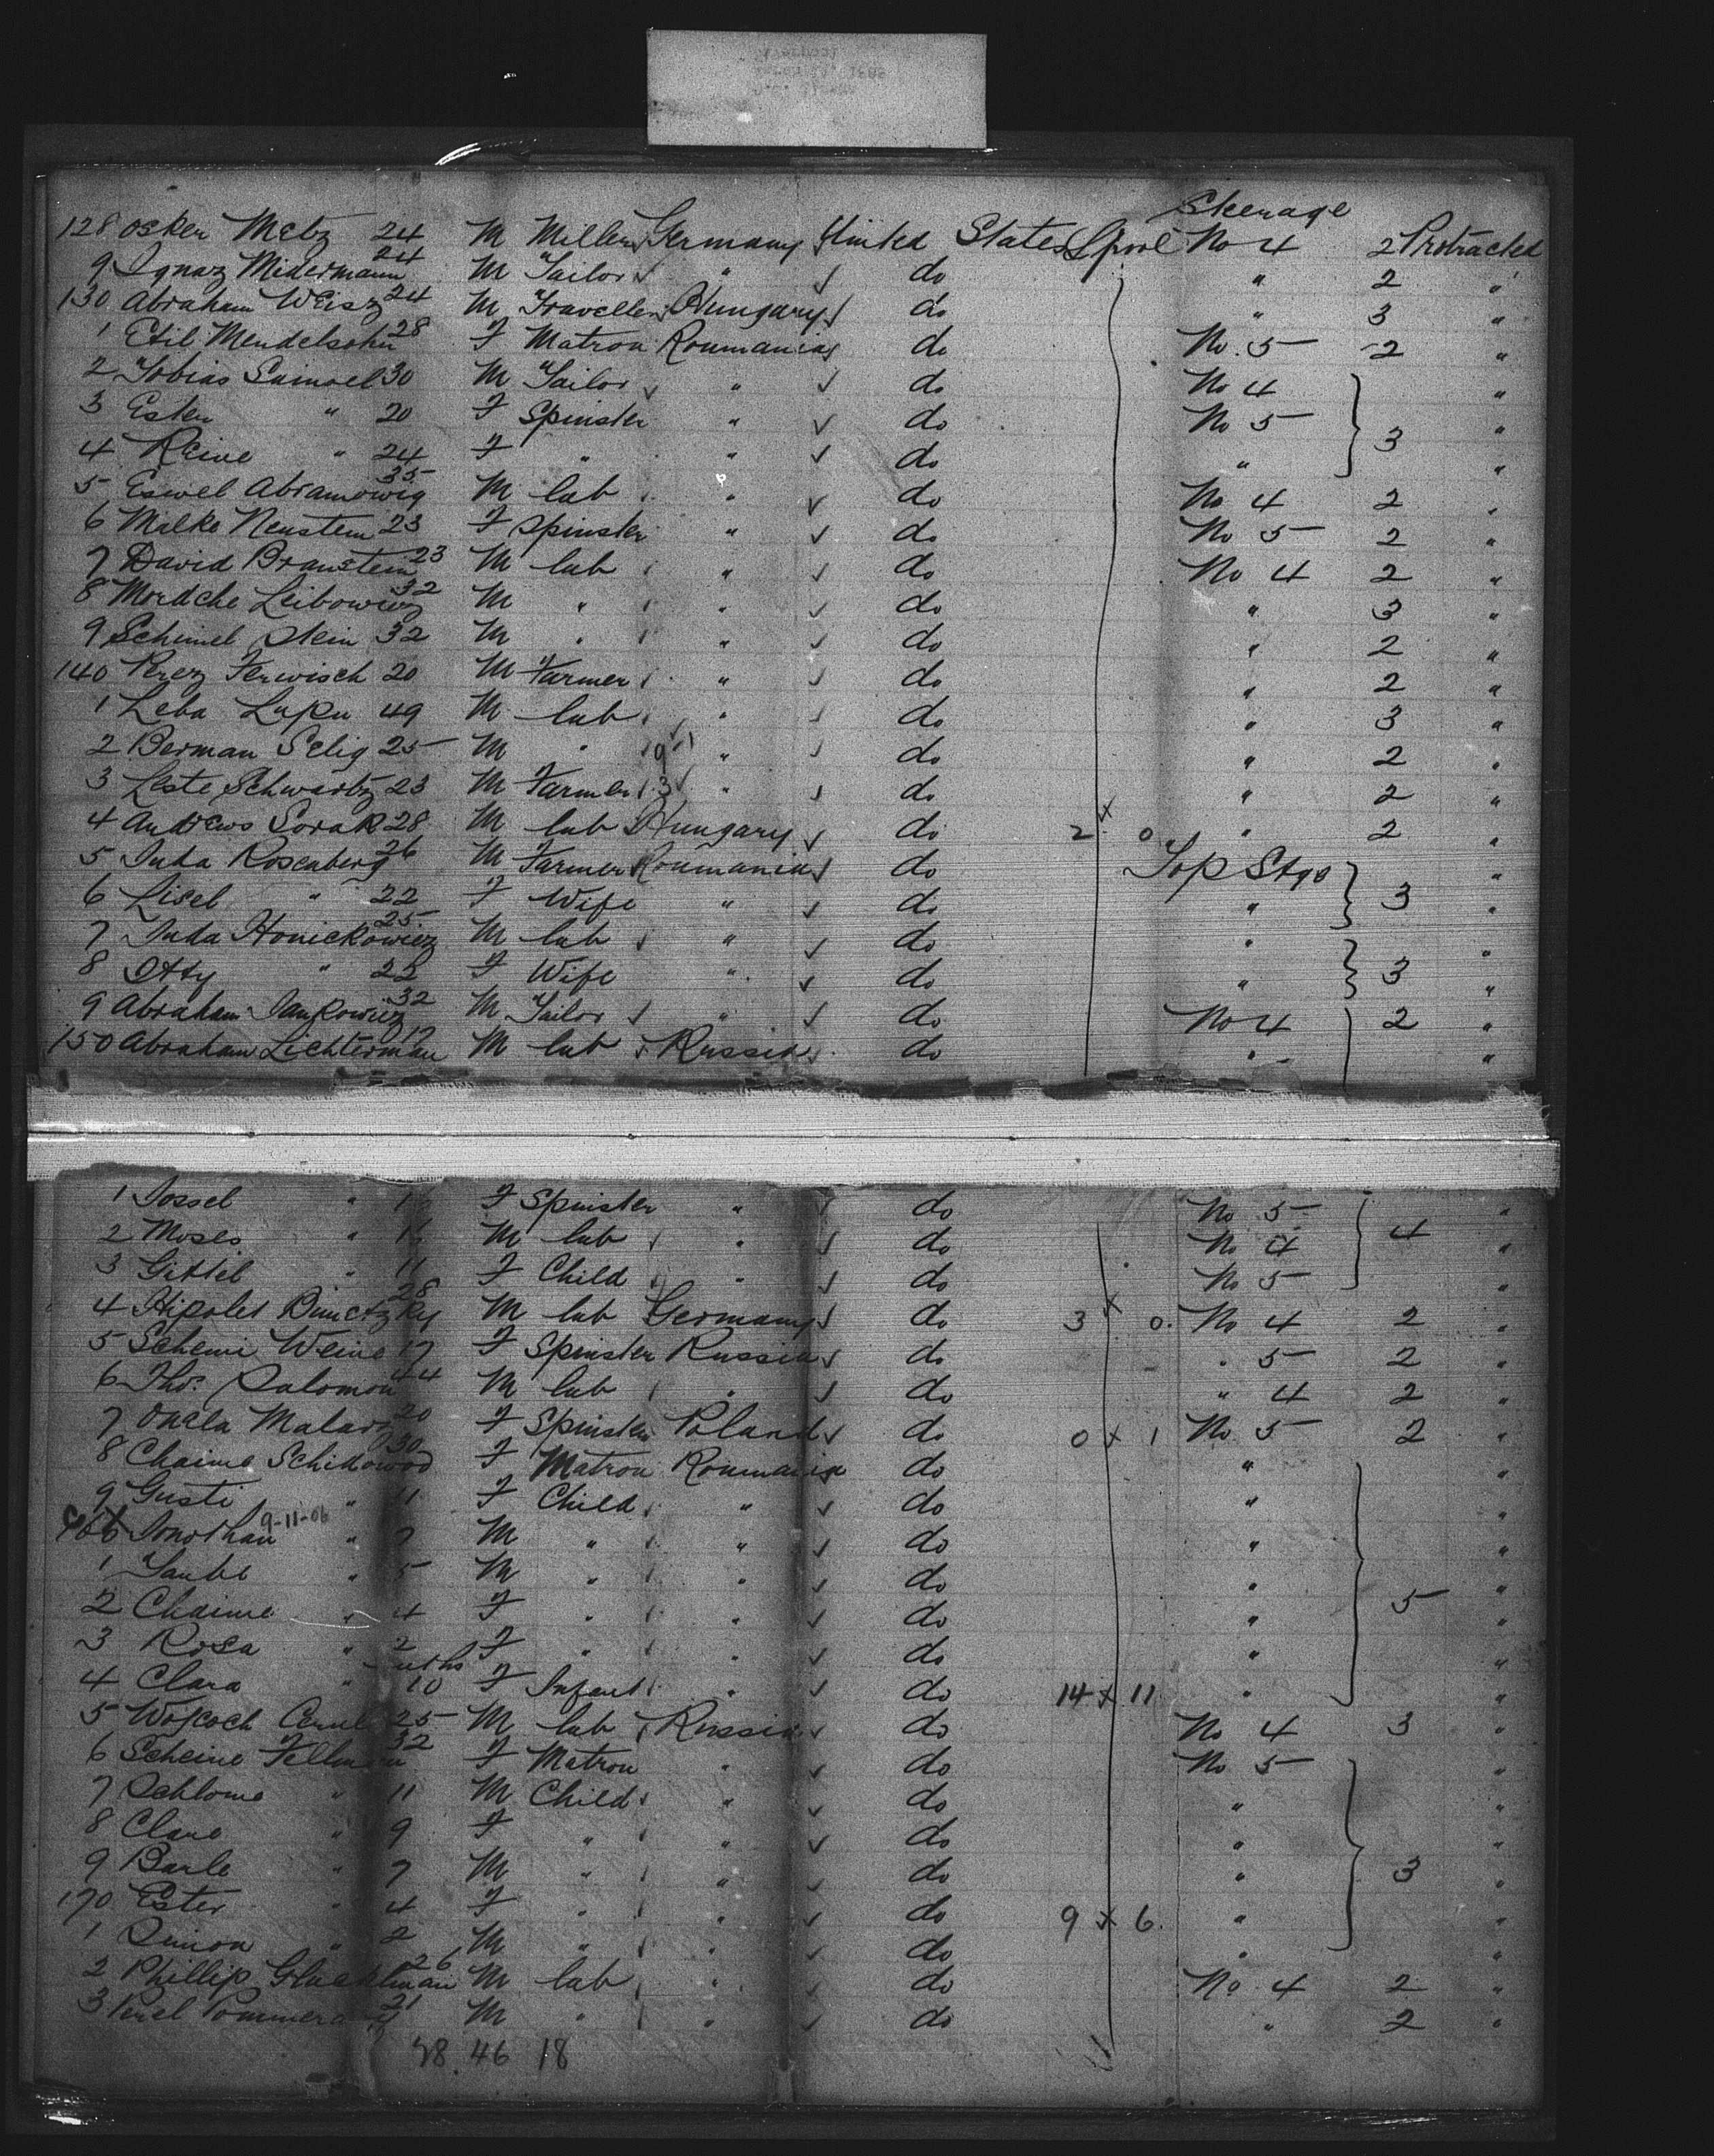 Steerage
128 Osker Metz 24 M Miller Germany United States Lpool No 4 2 Protracted
9 Ignaz Midermann 24 M Tailor " do " 2 "
130 Abraham Weisz 24 M Traveller Hungary do " 3 "
1 Etil Mendelsohn 28 F Matron Roumania do No. 5 2 "
2 Tobias Samoel 30 M Tailor " do No 4 "
3 Ester " 20 F Spinster " do No 5 "
4 Reine " 24 F " " do " 3 "
5 Eswel Abramowig 35 M lab " do No 4 2 "
6 Malke Neustein 23 F Spinster " do No 5 2 "
7 David Braustein 23 M lab " do No 4 2 "
8 Mordche Leibowicz 32 M " " do " 3 "
9 Schimel Stein 32 M " " do " 2 "
140 Perez Ferwisch 20 M Farmer " do " 2 "
1 Leba Lupu 49 M lab " do " 3 "
2 Berman Selig 25 M " 9 1 " do " 2 "
3 Leste Schwartz 23 M Farmer 3 " do " 2 "
4 Andrews Sorak 28 M lab Hungary do 2 x 0 " 2 "
5 Juda Rosenberg 26 M Farmer Roumania do Top Stge "
6 Lisel " 22 F Wife " do " 3 "
7 Juda Honickowicz 25 M lab " do " "
8 Itty " 22 F Wife " do " 3 "
9 Abraham Jankowicz 32 M Tailor " do No 4 2 "
150 Abraham Lichterman 17 M lab Russia do " "
1 Jossel " F Spinster " do No 5 "
2 Moses " M lab " do No 4 4 "
3 Gittel " 11 F Child " do No 5 "
4 Hipolet Binctzky 28 M lab Germany do 3 x 0. No 4 2 "
5 Scheni Weine 17 F Spinster Russia do " 5 2 "
6 Thos. Salomon 44 M lab " do " 4 2 "
7 Onala 20 F Spinster Poland do 0 x 1 No 5 2 "
8 Chaime Schidowod 30 F Matron Roumania do " "
9 Gusti " 11 F Child " do " "
9-11-06
Jonothan " 7 M " " do " "
1 Taube " 5 M " " do " "
2 Chaime " 4 F " " do " 5 "
3 Rosa " 2 F " " do " "
4 Clara " mths 10 F Infant " do 14 x 11 " "
5 Wojcoch 25 M lab Russia do No 4 3 "
6 Scheine Fellman 32 F Matron " do No 5 "
7 Schlome " 11 M Child " do " "
8 Clare " 9 F " " do " "
9 Barle " 7 M " " do " 3 "
170 Ester " 4 F " " do 9 x 6. " "
1 Simon " 2 M " " do " "
2 Phillip Gluckhman 26 M lab " do No. 4 2 "
3 21 M " " do " 2 "
38. 46 18